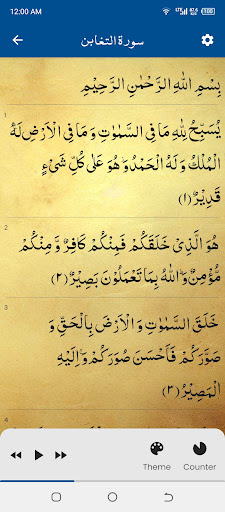 12:00 AM
سورة التغابن
بِسْمِ اللّٰهِ الرَّحْمٰنِ الرَّحِيْمِ
1
يُسَبِّحُ لِلّٰهِ مَا فِى السَّمٰوٰتِ وَ مَا فِى الْاَرْضِ لَهُ
الْمُلْكُ وَ لَهُ الْحَمْدُ وَ هُوَ عَلٰى كُلِّ شَىْءٍ
قَدِيْرٌ ﴿۱﴾
2
هُوَ الَّذِىْ خَلَقَكُمْ فَمِنْكُمْ كَافِرٌ وَّ مِنْكُمْ
مُّؤْمِنٌ وَ اللّٰهُ بِمَا تَعْمَلُوْنَ بَصِيْرٌ ﴿۲﴾
3
خَلَقَ السَّمٰوٰتِ وَ الْاَرْضَ بِالْحَقِّ وَ
صَوَّرَكُمْ فَاَحْسَنَ صُوَرَكُمْ وَ اِلَيْهِ
الْمَصِيْرُ ﴿۳﴾
4
Theme Counter